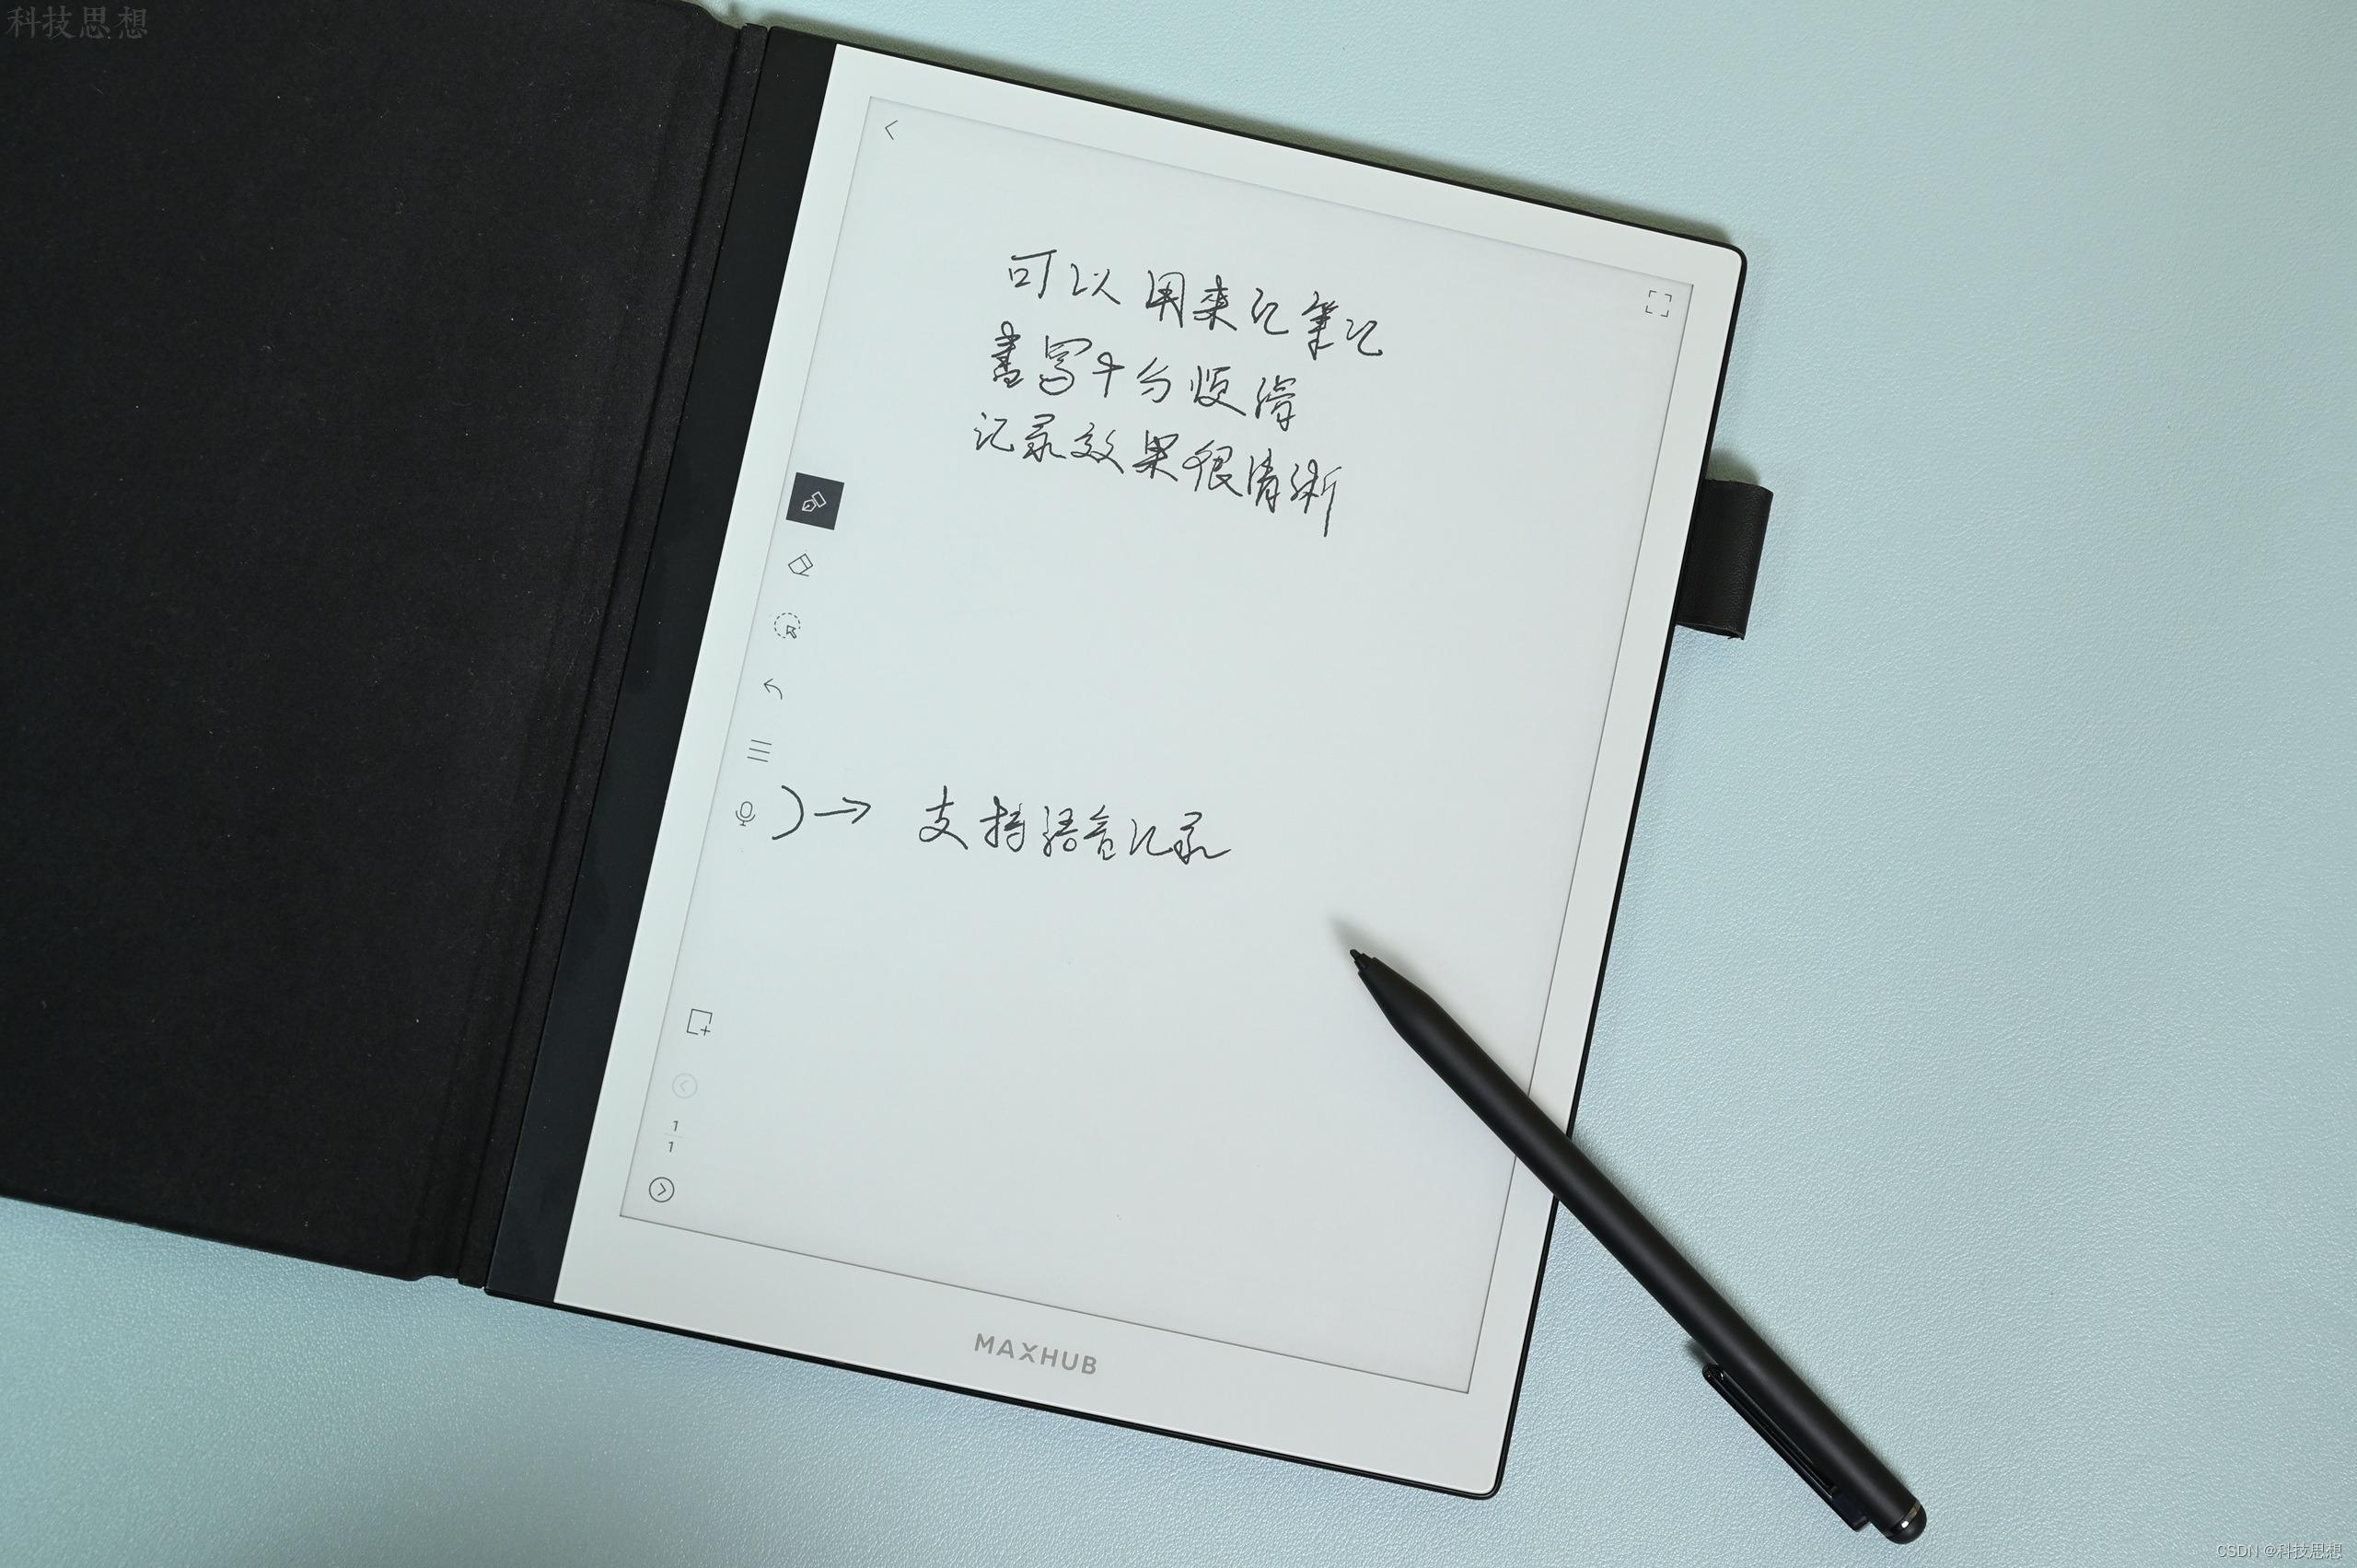 科技思想
可以用来记筆记
書写十分顺滑
记录效果很清晰
→ 支持语音记录
1
1
MAXHUB
CSDN @科技思想